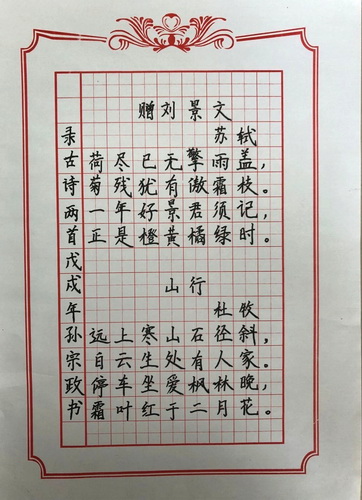 赠刘景文
苏轼
荷尽已无擎雨盖,
菊残犹有傲霜枝。
一年好景君须记,
正是橙黄橘绿时。
山行
杜牧
远上寒山石径斜,
白云生处有人家。
停车坐爱枫林晚,
霜叶红于二月花。
录古诗两首戊戌年孙宗政书